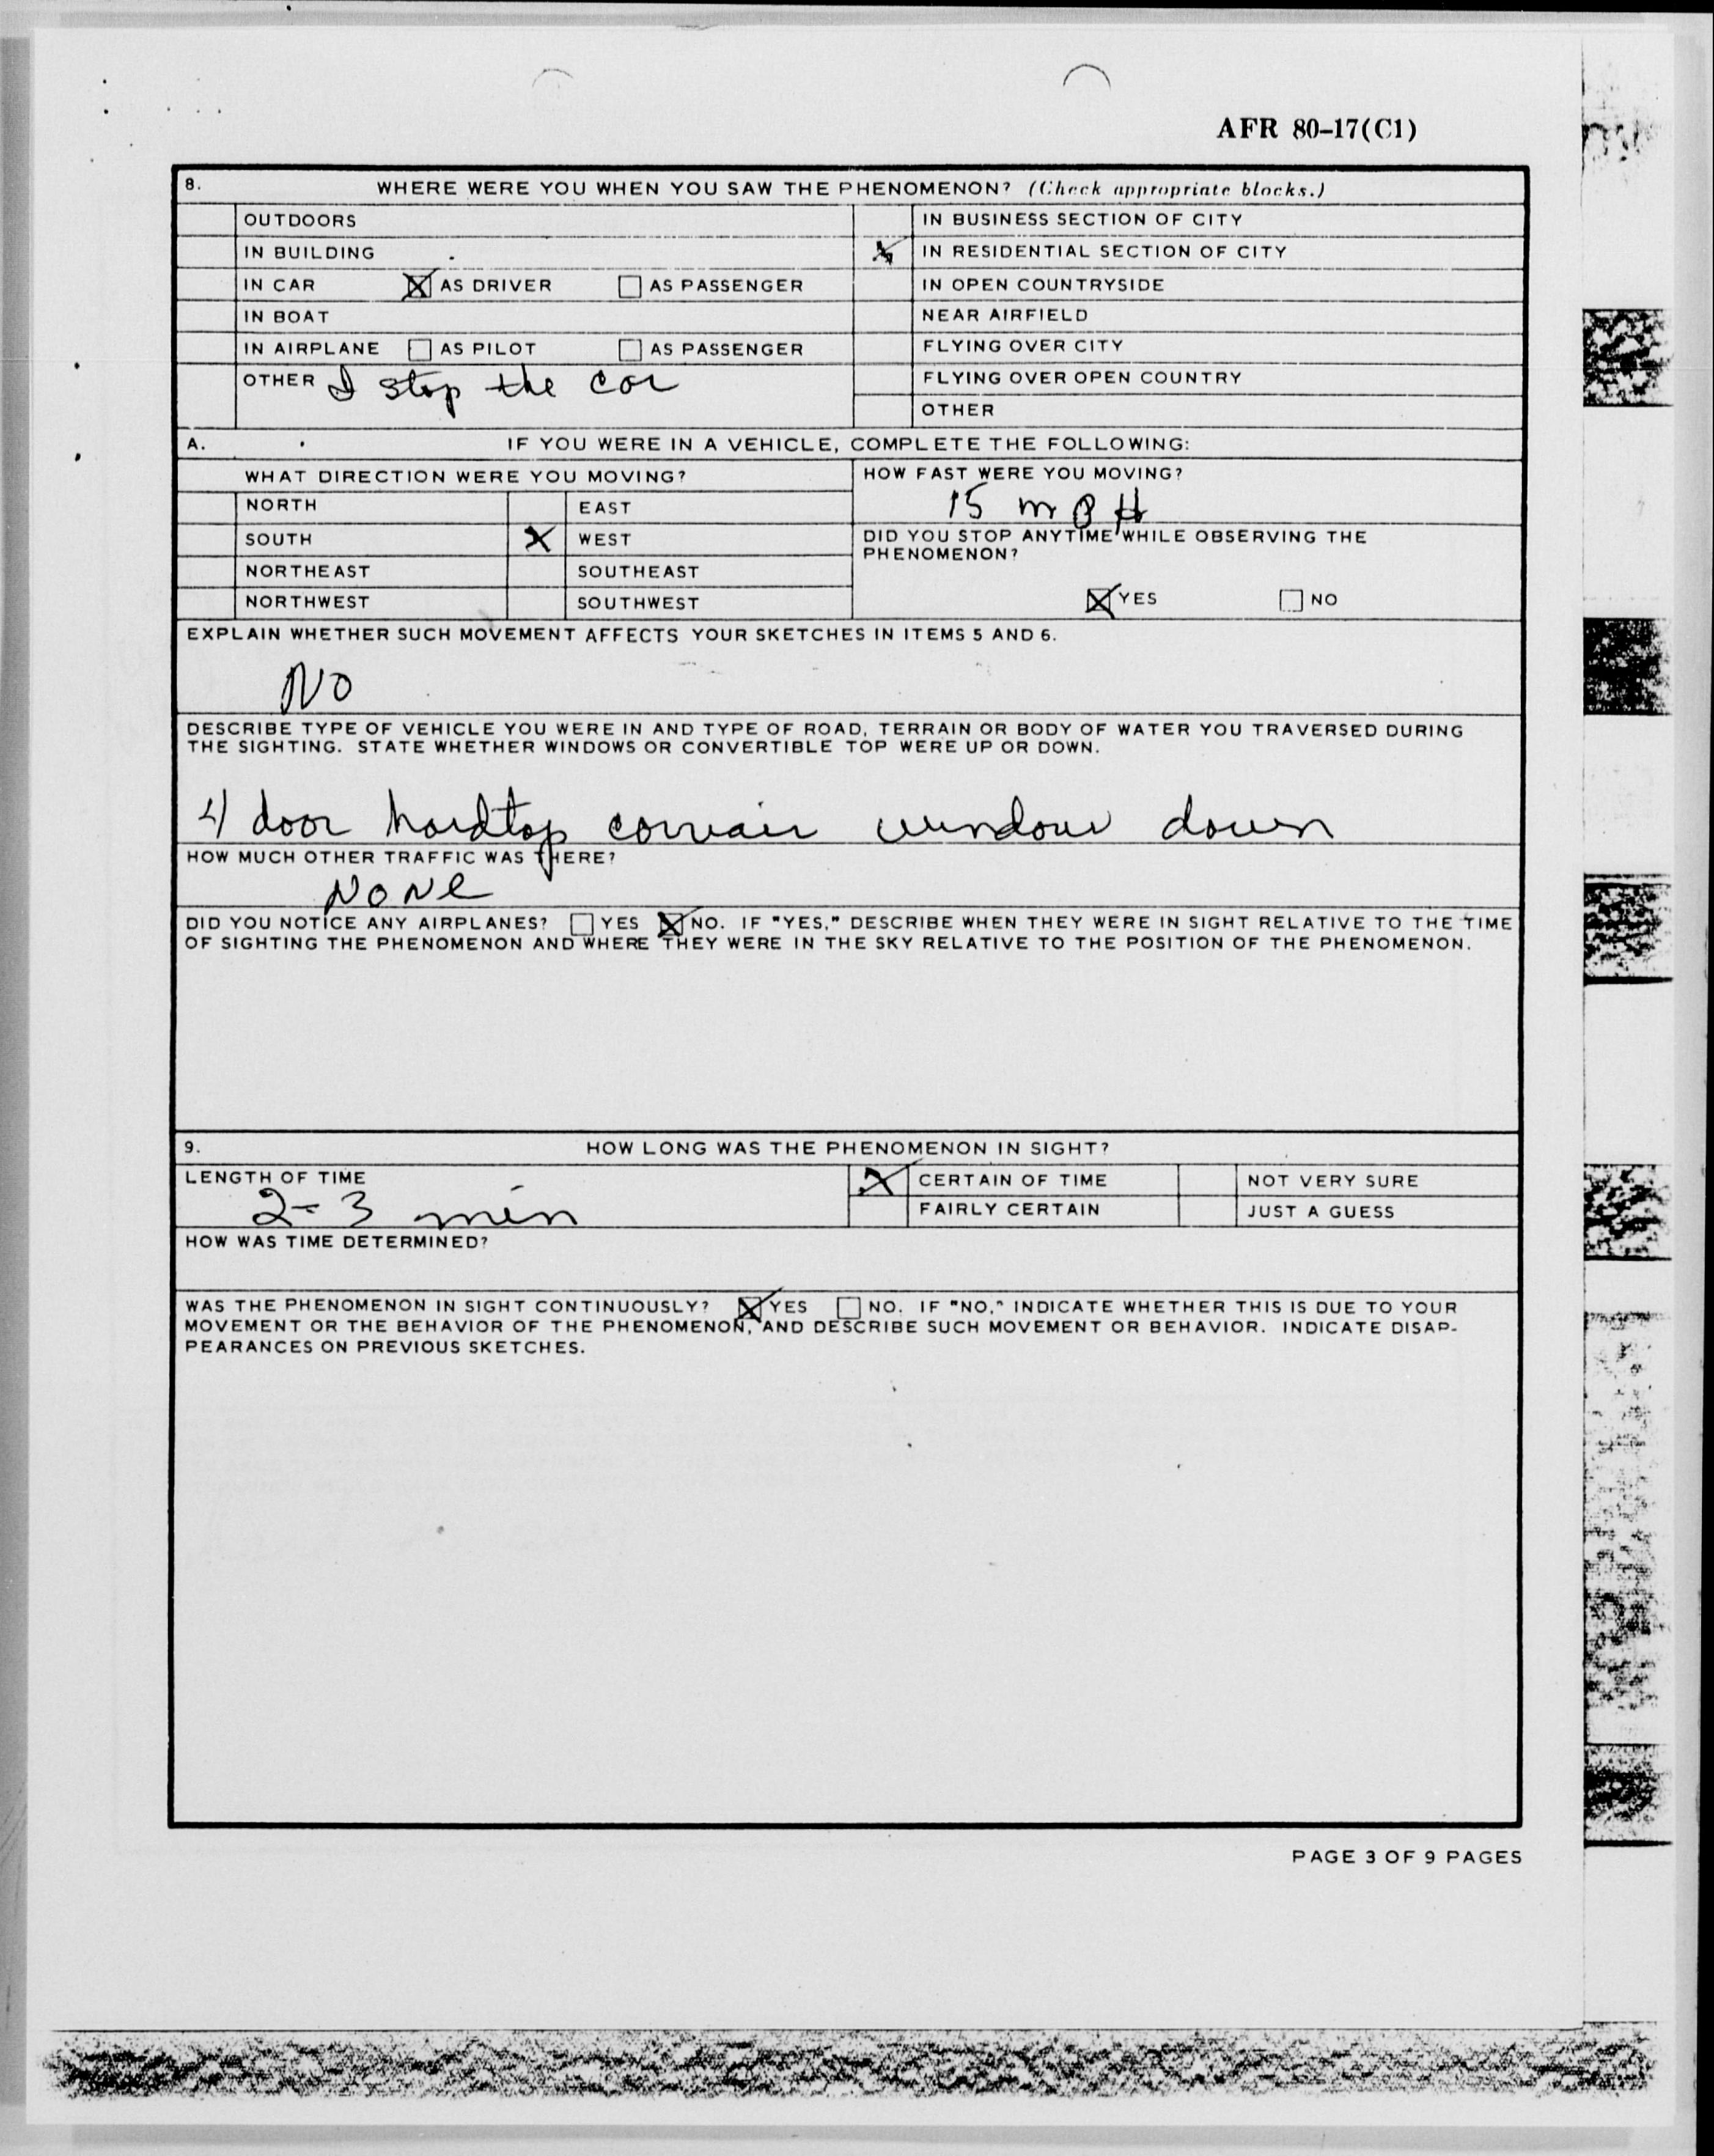 AFR 80-17(C1)
8. WHERE WERE YOU WHEN YOU SAW THE PHENOMENON? (Check appropriate blocks.)
OUTDOORS
IN BUILDING
IN CAR X AS DRIVER AS PASSENGER
IN BOAT
IN AIRPLANE AS PILOT AS PASSENGER
OTHER I stop the car
IN BUSINESS SECTION OF CITY
X IN RESIDENTIAL SECTION OF CITY
IN OPEN COUNTRYSIDE
NEAR AIRFIELD
FLYING OVER CITY
FLYING OVER OPEN COUNTRY
OTHER
A. IF YOU WERE IN A VEHICLE, COMPLETE THE FOLLOWING:
WHAT DIRECTION WERE YOU MOVING?
NORTH EAST
SOUTH X WEST
NORTHEAST SOUTHEAST
NORTHWEST SOUTHWEST
HOW FAST WERE YOU MOVING?
15 MPH
DID YOU STOP ANYTIME WHILE OBSERVING THE
PHENOMENON?
X YES NO
EXPLAIN WHETHER SUCH MOVEMENT AFFECTS YOUR SKETCHES IN ITEMS 5 AND 6.
NO
DESCRIBE TYPE OF VEHICLE YOU WERE IN AND TYPE OF ROAD, TERRAIN OR BODY OF WATER YOU TRAVERSED DURING
THE SIGHTING. STATE WHETHER WINDOWS OR CONVERTIBLE TOP WERE UP OR DOWN.
4 door hardtop corvair window down
HOW MUCH OTHER TRAFFIC WAS THERE?
NONE
DID YOU NOTICE ANY AIRPLANES? YES X NO. IF "YES," DESCRIBE WHEN THEY WERE IN SIGHT RELATIVE TO THE TIME
OF SIGHTING THE PHENOMENON AND WHERE THEY WERE IN THE SKY RELATIVE TO THE POSITION OF THE PHENOMENON.
9. HOW LONG WAS THE PHENOMENON IN SIGHT?
LENGTH OF TIME
2-3 min
X CERTAIN OF TIME NOT VERY SURE
FAIRLY CERTAIN JUST A GUESS
HOW WAS TIME DETERMINED?
WAS THE PHENOMENON IN SIGHT CONTINUOUSLY? X YES NO. IF "NO," INDICATE WHETHER THIS IS DUE TO YOUR
MOVEMENT OR THE BEHAVIOR OF THE PHENOMENON, AND DESCRIBE SUCH MOVEMENT OR BEHAVIOR. INDICATE DISAP-
PEARANCES ON PREVIOUS SKETCHES.
PAGE 3 OF 9 PAGES